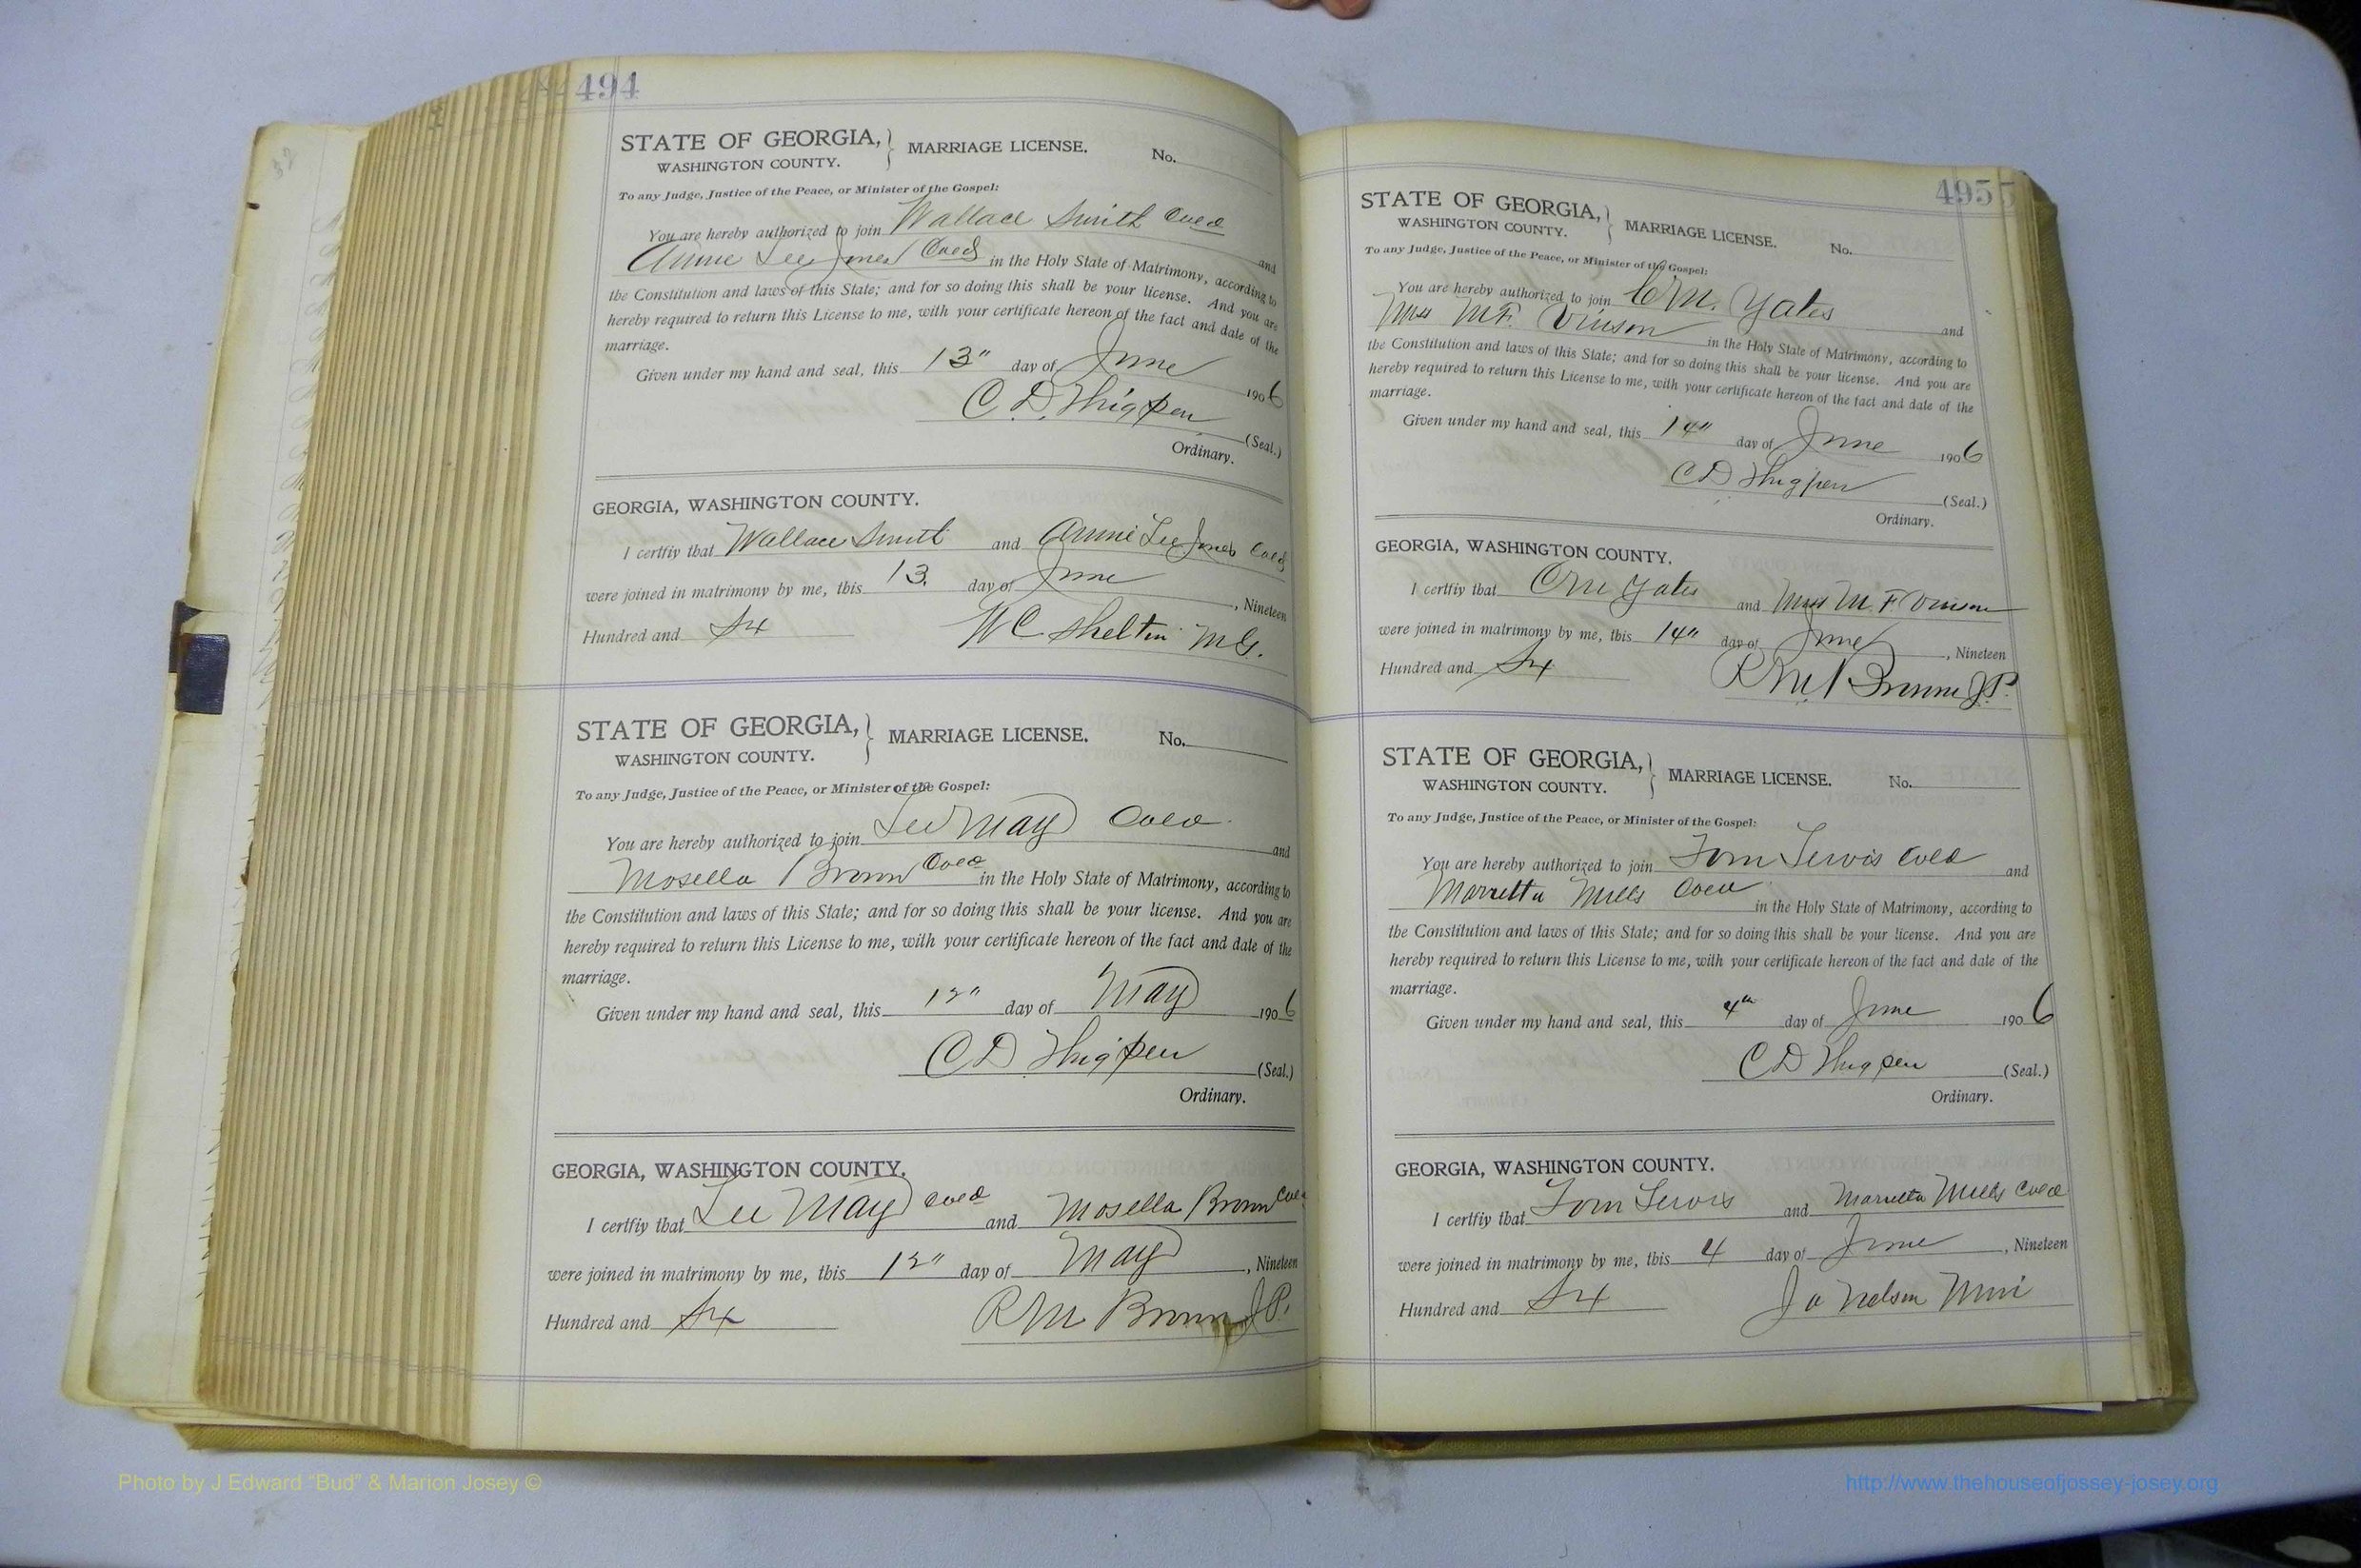 494
STATE OF GEORGIA, } MARRIAGE LICENSE. No.
WASHINGTON COUNTY.
To any Judge, Justice of the Peace, or Minister of the Gospel:
You are hereby authorized to join Wallace Smith Cold
and
Annie Lee Jones Cold in the Holy State of Matrimony, according to
the Constitution and laws of this State; and for so doing this shall be your license. And you are
hereby required to return this License to me, with your certificate hereon of the fact and date of the
marriage.
Given under my hand and seal, this 13" day of June 1906
C. D. Thigpen (Seal.)
Ordinary.
GEORGIA, WASHINGTON COUNTY.
I certfiy that Wallace Smith and Annie Lee Jones Cold
were joined in matrimony by me, this 13. day of June, Nineteen
Hundred and Six W C Shelton M.G.
STATE OF GEORGIA, } MARRIAGE LICENSE. No.
WASHINGTON COUNTY.
To any Judge, Justice of the Peace, or Minister of the Gospel:
You are hereby authorized to join Lee May Cold and
Mosella Brown Cold in the Holy State of Matrimony, according to
the Constitution and laws of this State; and for so doing this shall be your license. And you are
hereby required to return this License to me, with your certificate hereon of the fact and date of the
marriage.
Given under my hand and seal, this 12" day of May 1906
C D Thigpen (Seal.)
Ordinary.
GEORGIA, WASHINGTON COUNTY.
I certfiy that Lee May Cold and Mosella Brown Cold
were joined in matrimony by me, this 12" day of May, Nineteen
Hundred and Six R M Brown J.P.
495
STATE OF GEORGIA, } MARRIAGE LICENSE. No.
WASHINGTON COUNTY.
To any Judge, Justice of the Peace, or Minister of the Gospel:
You are hereby authorized to join Yates and
M F. Vinson in the Holy State of Matrimony, according to
the Constitution and laws of this State; and for so doing this shall be your license. And you are
hereby required to return this License to me, with your certificate hereon of the fact and date of the
marriage.
Given under my hand and seal, this 14" day of June 1906
C D Thigpen (Seal.)
Ordinary.
GEORGIA, WASHINGTON COUNTY.
I certfiy that Yates and M. F. Vinson
were joined in matrimony by me, this 14" day of June, Nineteen
Hundred and Six R M Brown J.P.
STATE OF GEORGIA, } MARRIAGE LICENSE. No.
WASHINGTON COUNTY.
To any Judge, Justice of the Peace, or Minister of the Gospel:
You are hereby authorized to join Tom Lewis Cold and
Marretta Mills Cold in the Holy State of Matrimony, according to
the Constitution and laws of this State; and for so doing this shall be your license. And you are
hereby required to return this License to me, with your certificate hereon of the fact and date of the
marriage.
Given under my hand and seal, this 4th day of June 1906
C D Thigpen (Seal.)
Ordinary.
GEORGIA, WASHINGTON COUNTY.
I certfiy that Tom Lewis and Marretta Mills Cold
were joined in matrimony by me, this 4 day of June, Nineteen
Hundred and Six Nelson Mini
Photo by J Edward “Bud” & Marion Josey ©
http://www.thehouseofjossey-josey.org